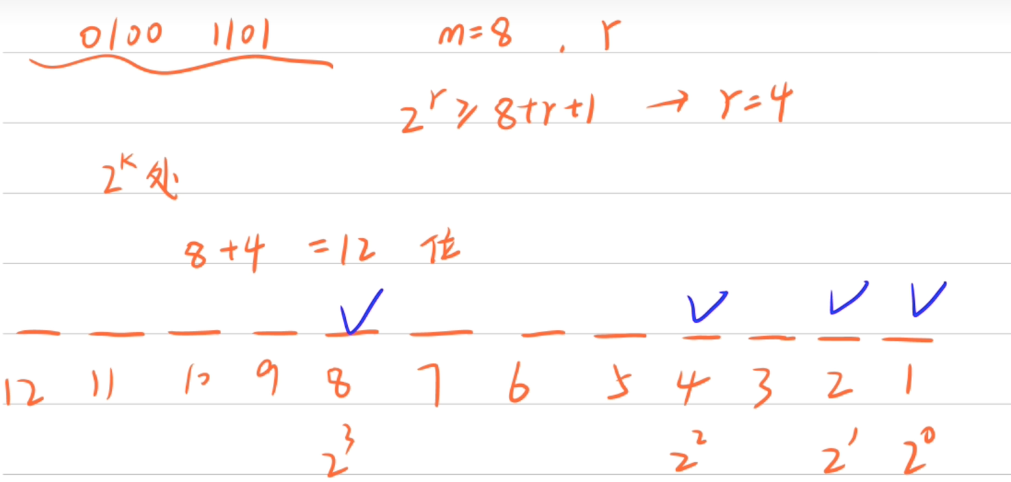 0100 1101 m=8 , r
2^r ≥ 8+r+1 → r=4
2^k 处
8+4 =12 位
12 11 10 9 8 7 6 5 4 3 2 1
2^3 2^2 2^1 2^0